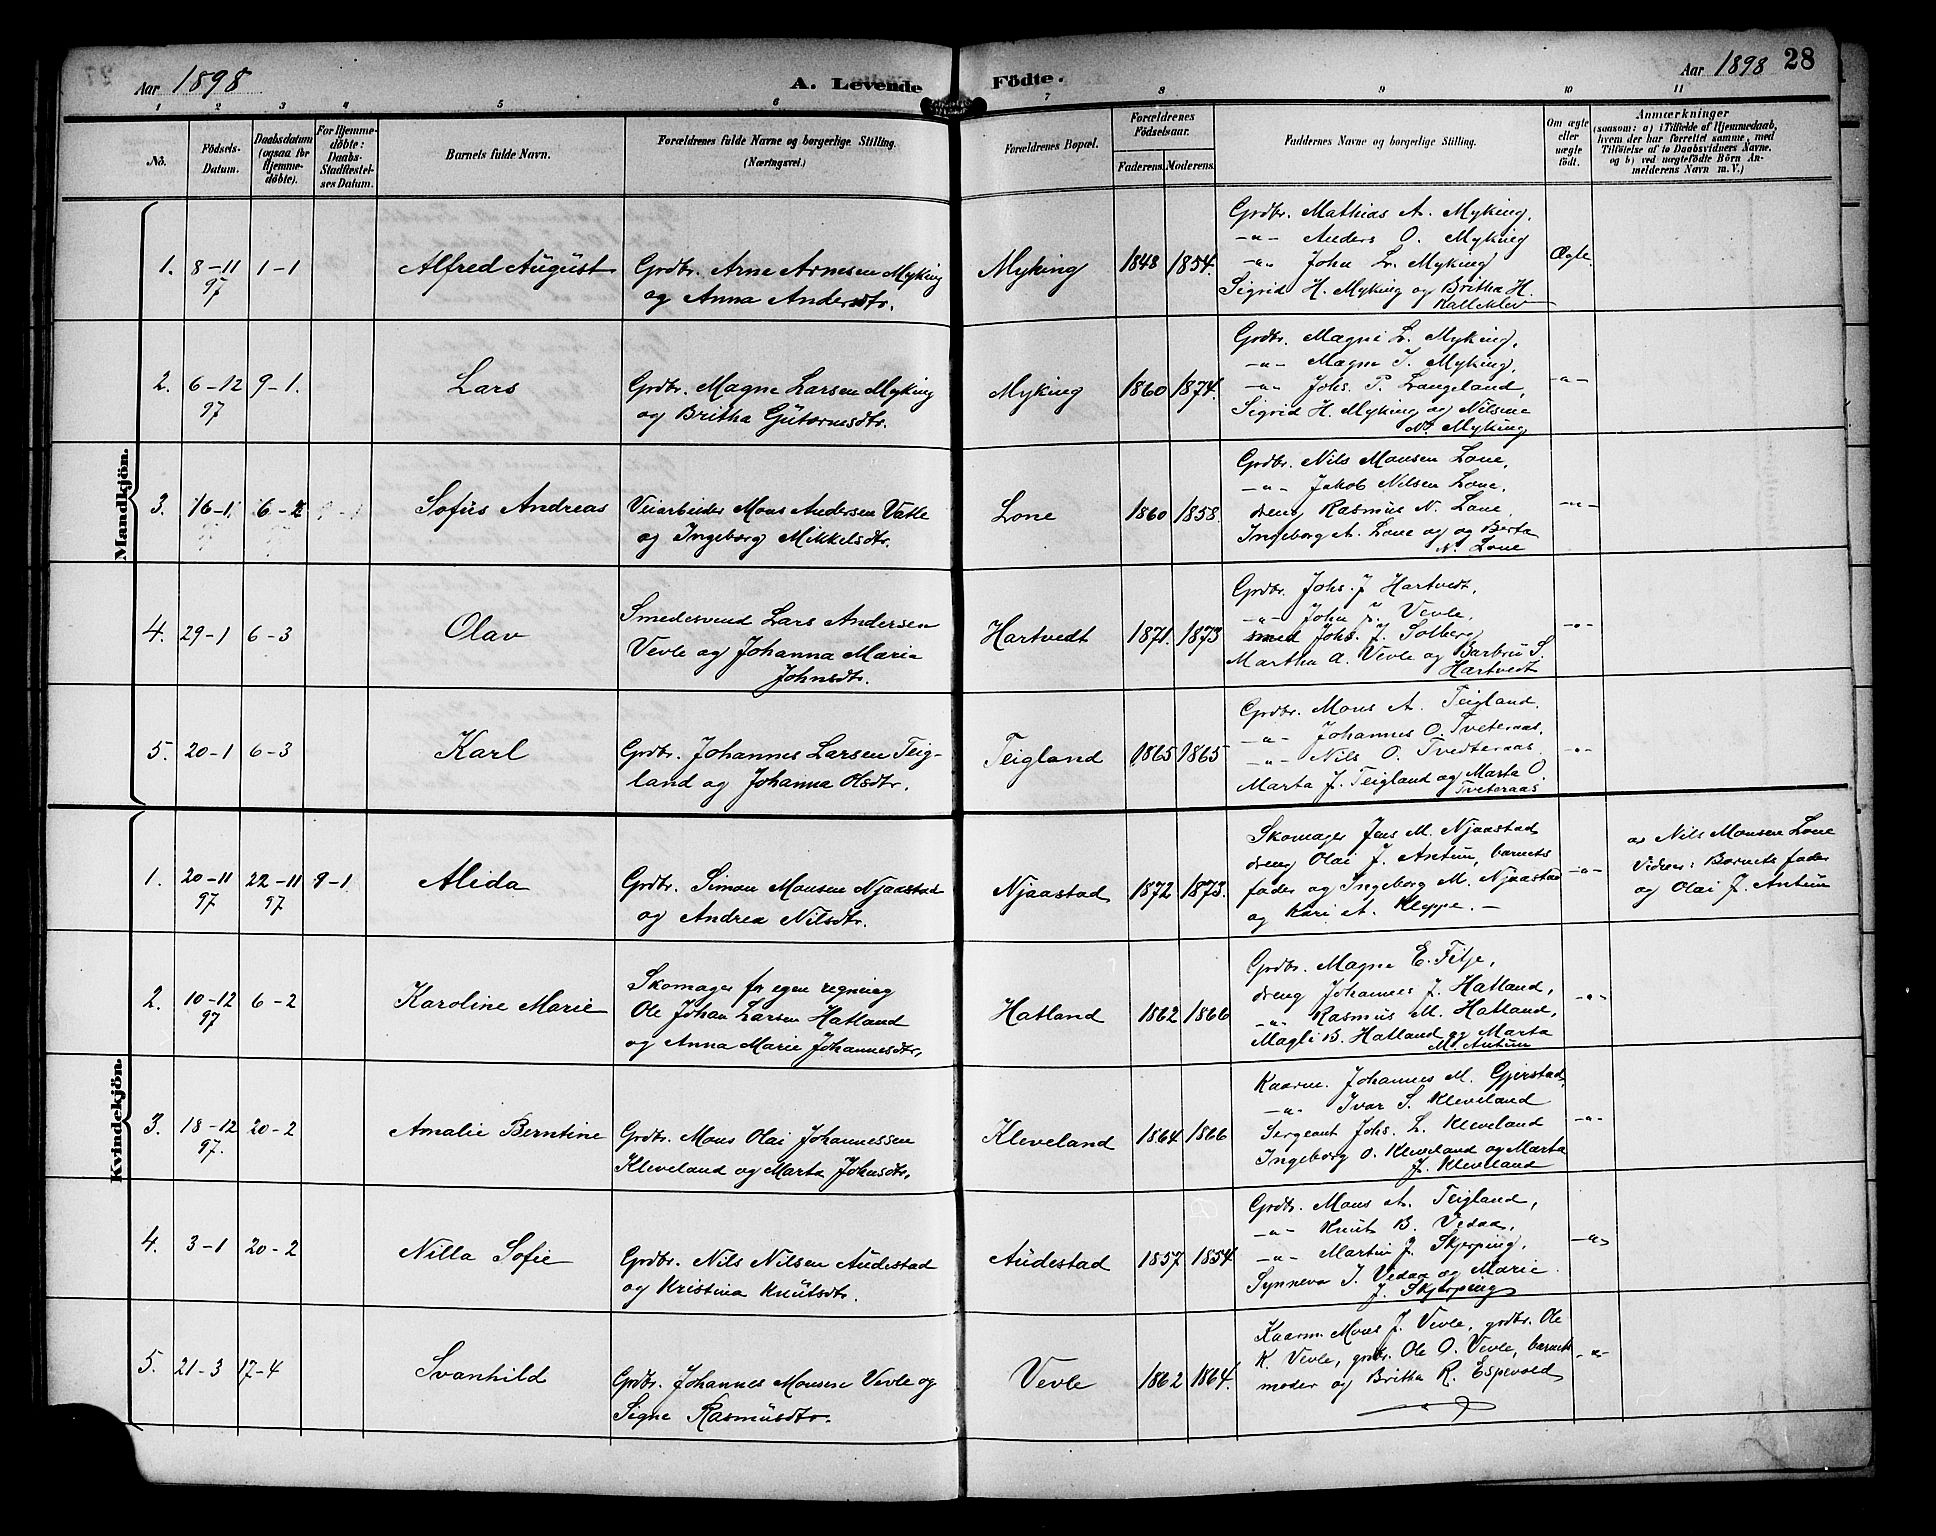 Aar 1898
A. Levende Födte.
Aar 1898
28
1 2 3 4 5 6 7 8 9 10 11
No.
Födsels-
Datum.
Daabsdatum
(ogsaa for
Hjemme-
döbte).
For Hjemme-
döbte:
Daabs-
Stadfæstel-
ses Datum.
Barnets fulde Navn.
Forældrenes fulde Navne og borgerlige Stilling.
(Næringsvei.)
Forældrenes Bopæl.
Forældrenes
Födselsaar.
Faderens. Moderens.
Faddernes Navne og borgerlige Stilling.
Om ægte
eller
uægte
født.
Anmærkninger
(saasom: a) i Tilfælde af Hjemmedaab,
hvem der har forrettet samme, med
Tilföielse af to Daabsvidners Navne.
og b) ved uægtefödte Börn An-
melderens Navn m. V.)
Mandkjön.
1. 8-11 97 1-1 Alfred August
Grdbr. Arne Arnesen Myking
og Anna Andersdtr.
Myking 1848 1854.
Grdbr. Mathias A. Myking,
-"- Anders O. Myking
-"- John L. Myking
Sigrid H. Myking og Britha H.
Kalleklev
Ægte.
2. 6-12 97 9-1. Lars
Grdbr. Magne Larsen Myking
og Britha Gütormsdtr.
Myking 1860 1874.
Grdbr. Magne L. Myking,
-"- Magne J. Myking,
-"- Johs. P. Langeland,
Sigrid H. Myking og Nilsine
N. Myking
-"-
3. 16-1. 6-2 Sofus Andreas
Veiarbeider Mons Andersen Vatle
og Ingeborg Mikkelsdtr.
Lone 1860 1858.
Grdbr. Nils Monsen Lone,
-"- Jakob Nilsen Lone,
dreng Rasmus N. Lone,
Ingeborg A. Lone og og Berta
N. Lone
-"-
4. 29-1 6-3 Olav
Smedesvend Lars Andersen
Vevle og Johanna Maria
Johnsdtr.
Hartvedt 1871. 1873
Grdbr. Johs. J. Hartvedt,
-"- John J. Vevle,
smed Johs. J. Solberg
Martha A. Vevle og Barbru S.
Hartvedt
-"-
5. 20-1 6-3 Karl
Grdbr. Johannes Larsen Teig-
land og Johanna Olsdtr.
Teigland 1865 1865
Grdbr. Mons A. Teigland,
-"- Johannes O. Tveteraas,
-"- Nils O. Tvedteraas
Marta J. Teigland og Marta O.
Tveteraas
-"-
Kvindekjön.
1. 20-11 97 22-11 97 9-1 Alida
Grdbr. Simon Monsen Njaastad
og Andrea Nilsdtr.
Njaastad 1872 1873.
Skomager Jens M. Njaastad
dreng Olai J. Antun, barnets
fader og Ingeborg M. Njaastad
og Kari A. Kleppe. -
-"-
av Nils Monsen Lone
Vidner: Barnets fader
og Olai J. Antun
2. 10-12 97 6-2 Karoline Marie
Skomager for egen regning
Ole Johan Larsen Hatland
og Anna Marie Johannesdtr.
Hatland 1862 1866
Grdbr. Magne E. Titje,
dreng Johannes J. Hatland,
-"- Rasmus M. Hatland,
Magli B. Hatland og Marta
M. Antun
-"-
3. 18-12 97. 20-2 Amalie Berntine
Grdbr. Mons Olai Johannessen
Kleveland og Marta Johnsdtr.
Kleveland 1864 1866
Kaarm. Johannes M. Gjerstad,
-"- Ivar S. Kleveland
Sergeant Johs. L. Kleveland
Ingeborg O. Kleveland og Marta
J. Kleveland
-"-
4. 3-1 20-2 Nilla Sofie
Grdbr. Nils Nilsen Audestad
og Kristina Knutsdtr.
Audestad 1857 1854.
Grdbr. Mons A. Teigland,
-"- Knut B. Vedaa,
-"- Martin J. Skjerping,
Synneva I. Vedaa og Marie
J. Skjerping
-"-
5. 21-3 17-4 Svanhild
Grdbr. Johannes Monsen Vevle og
Signe Rasmusdtr.
Vevle 1862 1864.
Kaarm. Mons J. Vevle, grdbr. Ole
K. Vevle, grdbr. Ole O. Vevle, barnets
moder og Britha R. Espevold
-"-